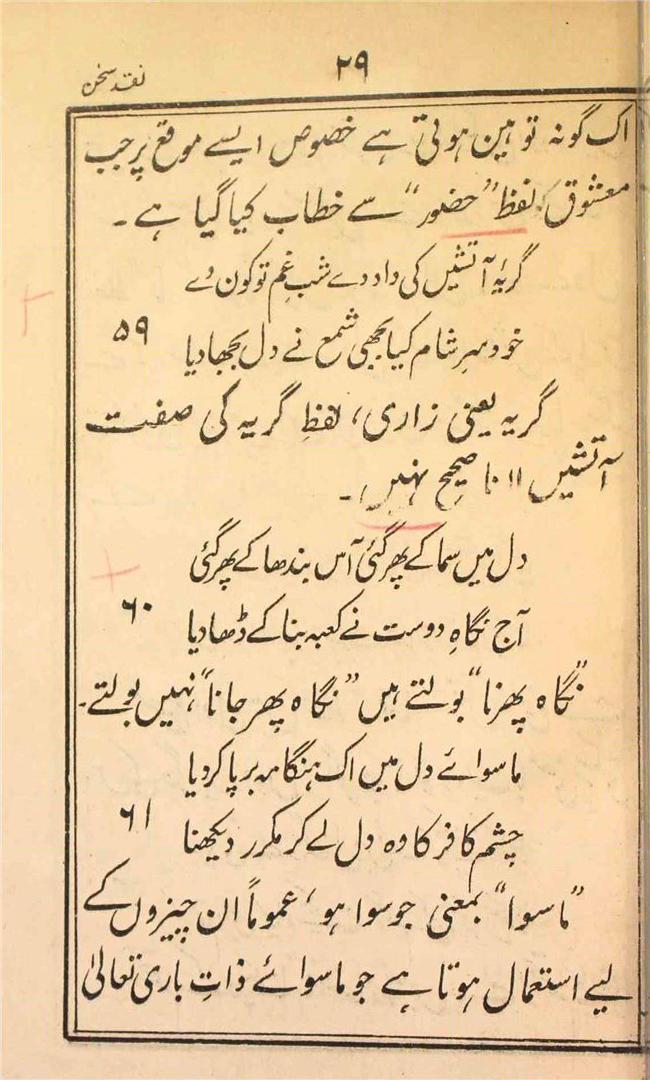 ۲۹
نقد سخن
اک گونہ توہین ہوتی ہے خصوص ایسے موقع پر جب
معشوق کو لفظ "حضور" سے خطاب کیا گیا ہے۔
گریۂ آتشیں کی داد دے شب غم تو کون دے
خود سرِ شام کیا بجھی شمع نے دل بجھا دیا ۵۹
گریہ یعنی زاری، لفظِ گریہ کی صفت
آتشیں لانا صحیح نہیں۔
دل میں سما کے پھر گئی آس بندھا کے پھر گئی
آج نگاہِ دوست نے کعبہ بنا کے ڈھا دیا ۶۰
"نگاہ پھرنا" بولتے ہیں "نگاہ پھر جانا" نہیں بولتے۔
ماسوائے دل میں اک ہنگامہ برپا کر دیا
چشم کافر کا وہ دل لے کر مکرر دیکھنا ۶۱
"ماسوا" بمعنی جو سوا ہو، عموماً ان چیزوں کے
لیے استعمال ہوتا ہے جو ماسوائے ذاتِ باری تعالیٰ